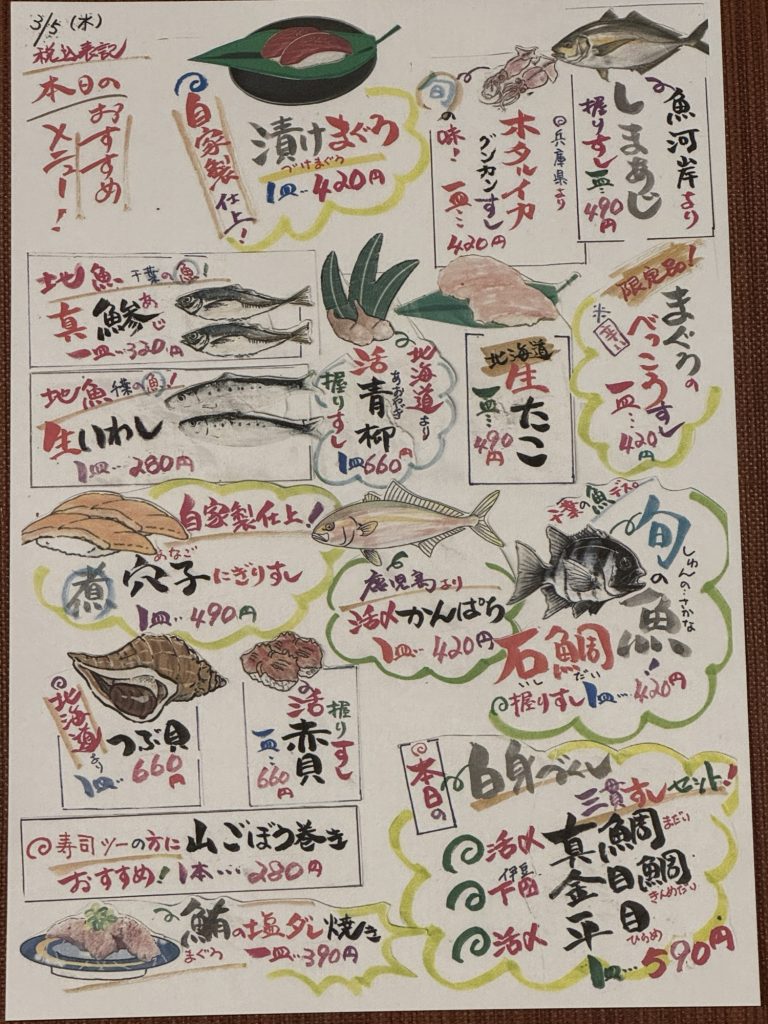 3/5 (水)
税込表記
本日の
おすすめ
メニュー!
自家製仕上!
漬けまぐろ
づけまぐろ
1皿‥420円
旬の味!
ホタルイカ
グンカンすし
兵庫県より
一皿‥420円
魚河岸より
しまあじ
握りすし一皿‥490円
地魚 千葉の魚!
真鯵
あじ
一皿‥320円
地魚 千葉の魚!
生いわし
1皿‥280円
北海道より
活青柳
あおやぎ
握りすし
1皿660円
北海道
生たこ
一皿‥490円
限定品!
まぐろの
べっこうすし
一皿‥420円
自家製仕上!
あなご
煮穴子にぎりすし
1皿‥490円
鹿児島より
活〆かんぱち
1皿‥420円
千葉の魚デス。
旬の魚!
しゅんの‥さかな
石鯛
いしだい
握りすし1皿‥420円
北海道より
つぶ貝
1皿‥660円
握りすし
活赤貝
一皿‥660円
寿司ツーの方に
おすすめ!
山ごぼう巻き
1本‥280円
鮪の塩ダレ焼き
まぐろ
一皿‥390円
本日の
白身づくし
三貫すしセット!
活〆 真鯛 まだい
伊豆
下田 金目鯛 きんめだい
活〆 平目 ひらめ
1皿‥590円